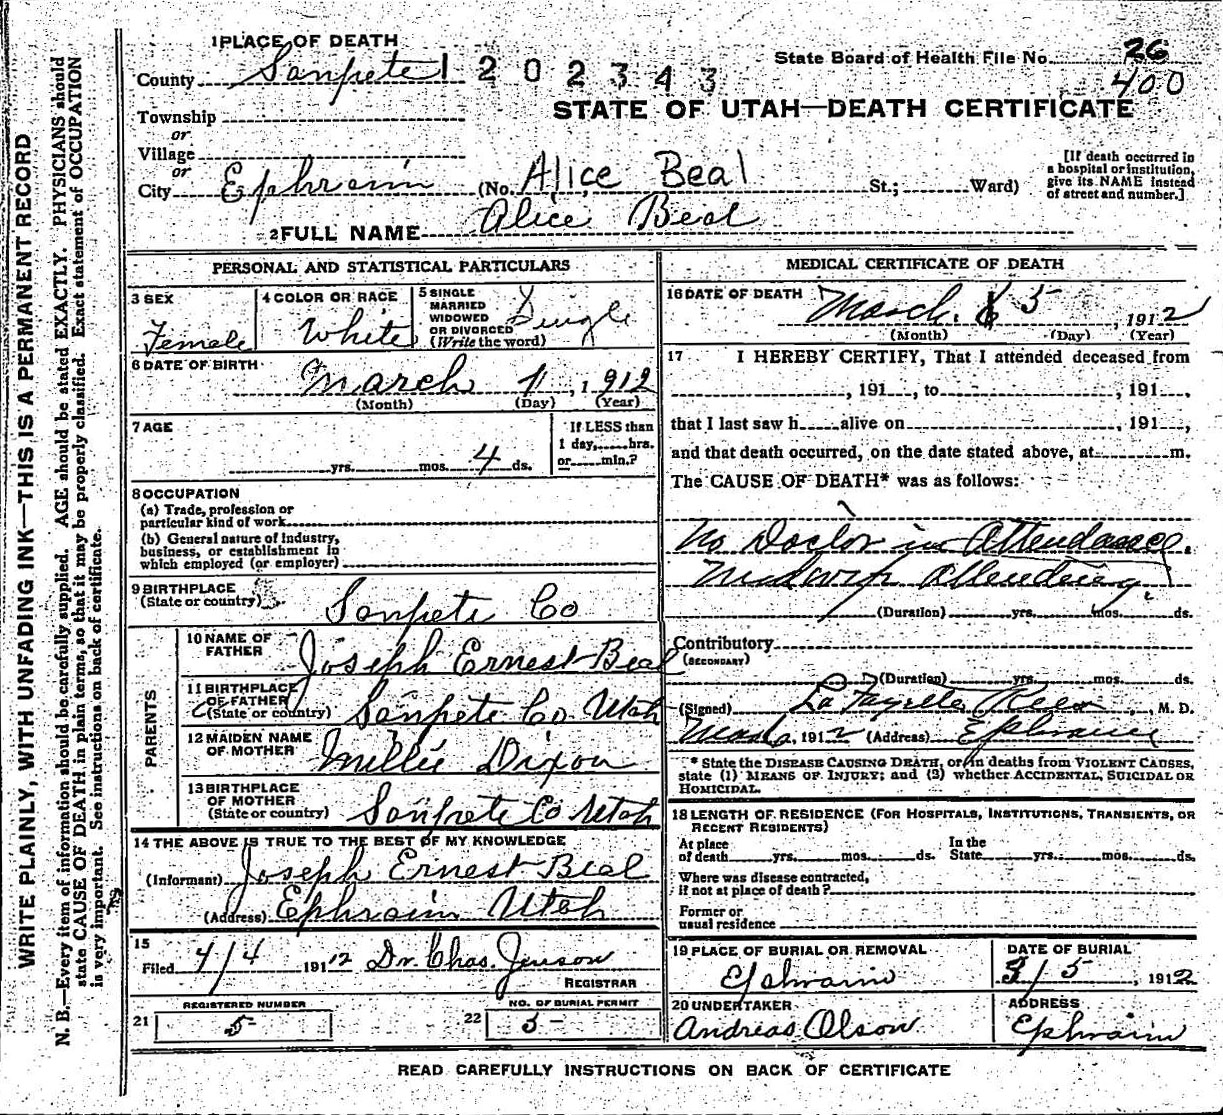 1 PLACE OF DEATH
County Sanpete 1 2 0 2 3 4 3
State Board of Health File No. 26
400
STATE OF UTAH—DEATH CERTIFICATE
Township
or
Village
or
City Ephraim (No. Alice Beal St.; Ward)
[If death occurred in
a hospital or institution,
give its NAME instead
of street and number.]
2 FULL NAME Alice Beal
PERSONAL AND STATISTICAL PARTICULARS
3 SEX
Female
4 COLOR OR RACE
White
5 SINGLE
MARRIED
WIDOWED
OR DIVORCED
(Write the word)
Single
6 DATE OF BIRTH
March 1, 1912
(Month) (Day) (Year)
7 AGE
yrs. mos. 4 ds.
If LESS than
1 day, hrs.
or min.?
8 OCCUPATION
(a) Trade, profession or
particular kind of work
(b) General nature of industry,
business, or establishment in
which employed (or employer)
9 BIRTHPLACE
(State or country)
Sanpete Co
PARENTS
10 NAME OF
FATHER
Joseph Ernest Beal
11 BIRTHPLACE
OF FATHER
(State or country)
Sanpete Co. Utah
12 MAIDEN NAME
OF MOTHER
Millie Dixon
13 BIRTHPLACE
OF MOTHER
(State or country)
Sanpete Co Utah
14 THE ABOVE IS TRUE TO THE BEST OF MY KNOWLEDGE
(Informant) Joseph Ernest Beal
(Address) Ephraim Utah
15
Filed 4/4 191 12 Dr. Chas. Jenson
REGISTRAR
REGISTERED NUMBER
21 5
NO. OF BURIAL PERMIT
22 5
MEDICAL CERTIFICATE OF DEATH
16 DATE OF DEATH
March 5, 1912
(Month) (Day) (Year)
17 I HEREBY CERTIFY, That I attended deceased from
, 191 , to , 191 ,
that I last saw h alive on , 191 ,
and that death occurred, on the date stated above, at m.
The CAUSE OF DEATH* was as follows:
No Doctor in Attendance.
Midwife Attending.
(Duration) yrs. mos. ds.
Contributory
(SECONDARY)
(Duration) yrs. mos. ds.
(Signed) La Fayette Rees, M. D.
Mar 6, 1912 (Address) Ephraim
* State the DISEASE CAUSING DEATH, or in deaths from VIOLENT CAUSES,
state (1) MEANS OF INJURY; and (2) whether ACCIDENTAL, SUICIDAL OR
HOMICIDAL.
18 LENGTH OF RESIDENCE (FOR HOSPITALS, INSTITUTIONS, TRANSIENTS, OR
RECENT RESIDENTS)
At place
of death yrs. mos. ds.
In the
State yrs. mos. ds.
Where was disease contracted,
if not at place of death?
Former or
usual residence
19 PLACE OF BURIAL OR REMOVAL
Ephraim
DATE OF BURIAL
3/5, 1912
20 UNDERTAKER
Andreas Olson
ADDRESS
Ephraim
READ CAREFULLY INSTRUCTIONS ON BACK OF CERTIFICATE
WRITE PLAINLY, WITH UNFADING INK—THIS IS A PERMANENT RECORD
N. B.—Every item of information should be carefully supplied. AGE should be stated EXACTLY. PHYSICIANS should
state CAUSE OF DEATH in plain terms, so that it may be properly classified. Exact statement of OCCUPATION
is very important. See instructions on back of certificate.